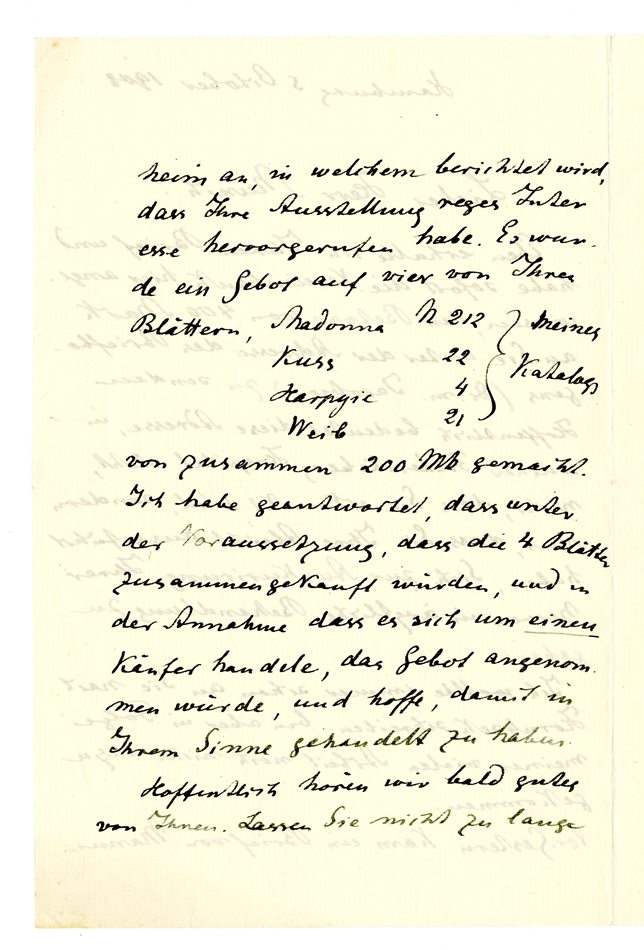 heim an, in welchem berichtet wird,
dass Ihre Ausstellung reges Inter
esse hervorgerufen habe. Es wur-
de ein Gebot auf vier von Ihren
Blättern, Madonna N 212 } Meines
Kuss 22 Katalogs
Harpyie 4
Weib 21
von zusammen 200 Mk gemacht.
Ich habe geantwortet, dass unter
der Voraussetzung, dass die 4 Blätter
zusammengekauft würden, und in
der Annahme dass es sich um einen
Käufer handele, das Gebot angenom
men würde, und hoffe, damit in
Ihrem Sinne gehandelt zu haben.
Hoffentlich hören wir bald gutes
von Ihnen. Lassen Sie nicht zu lange